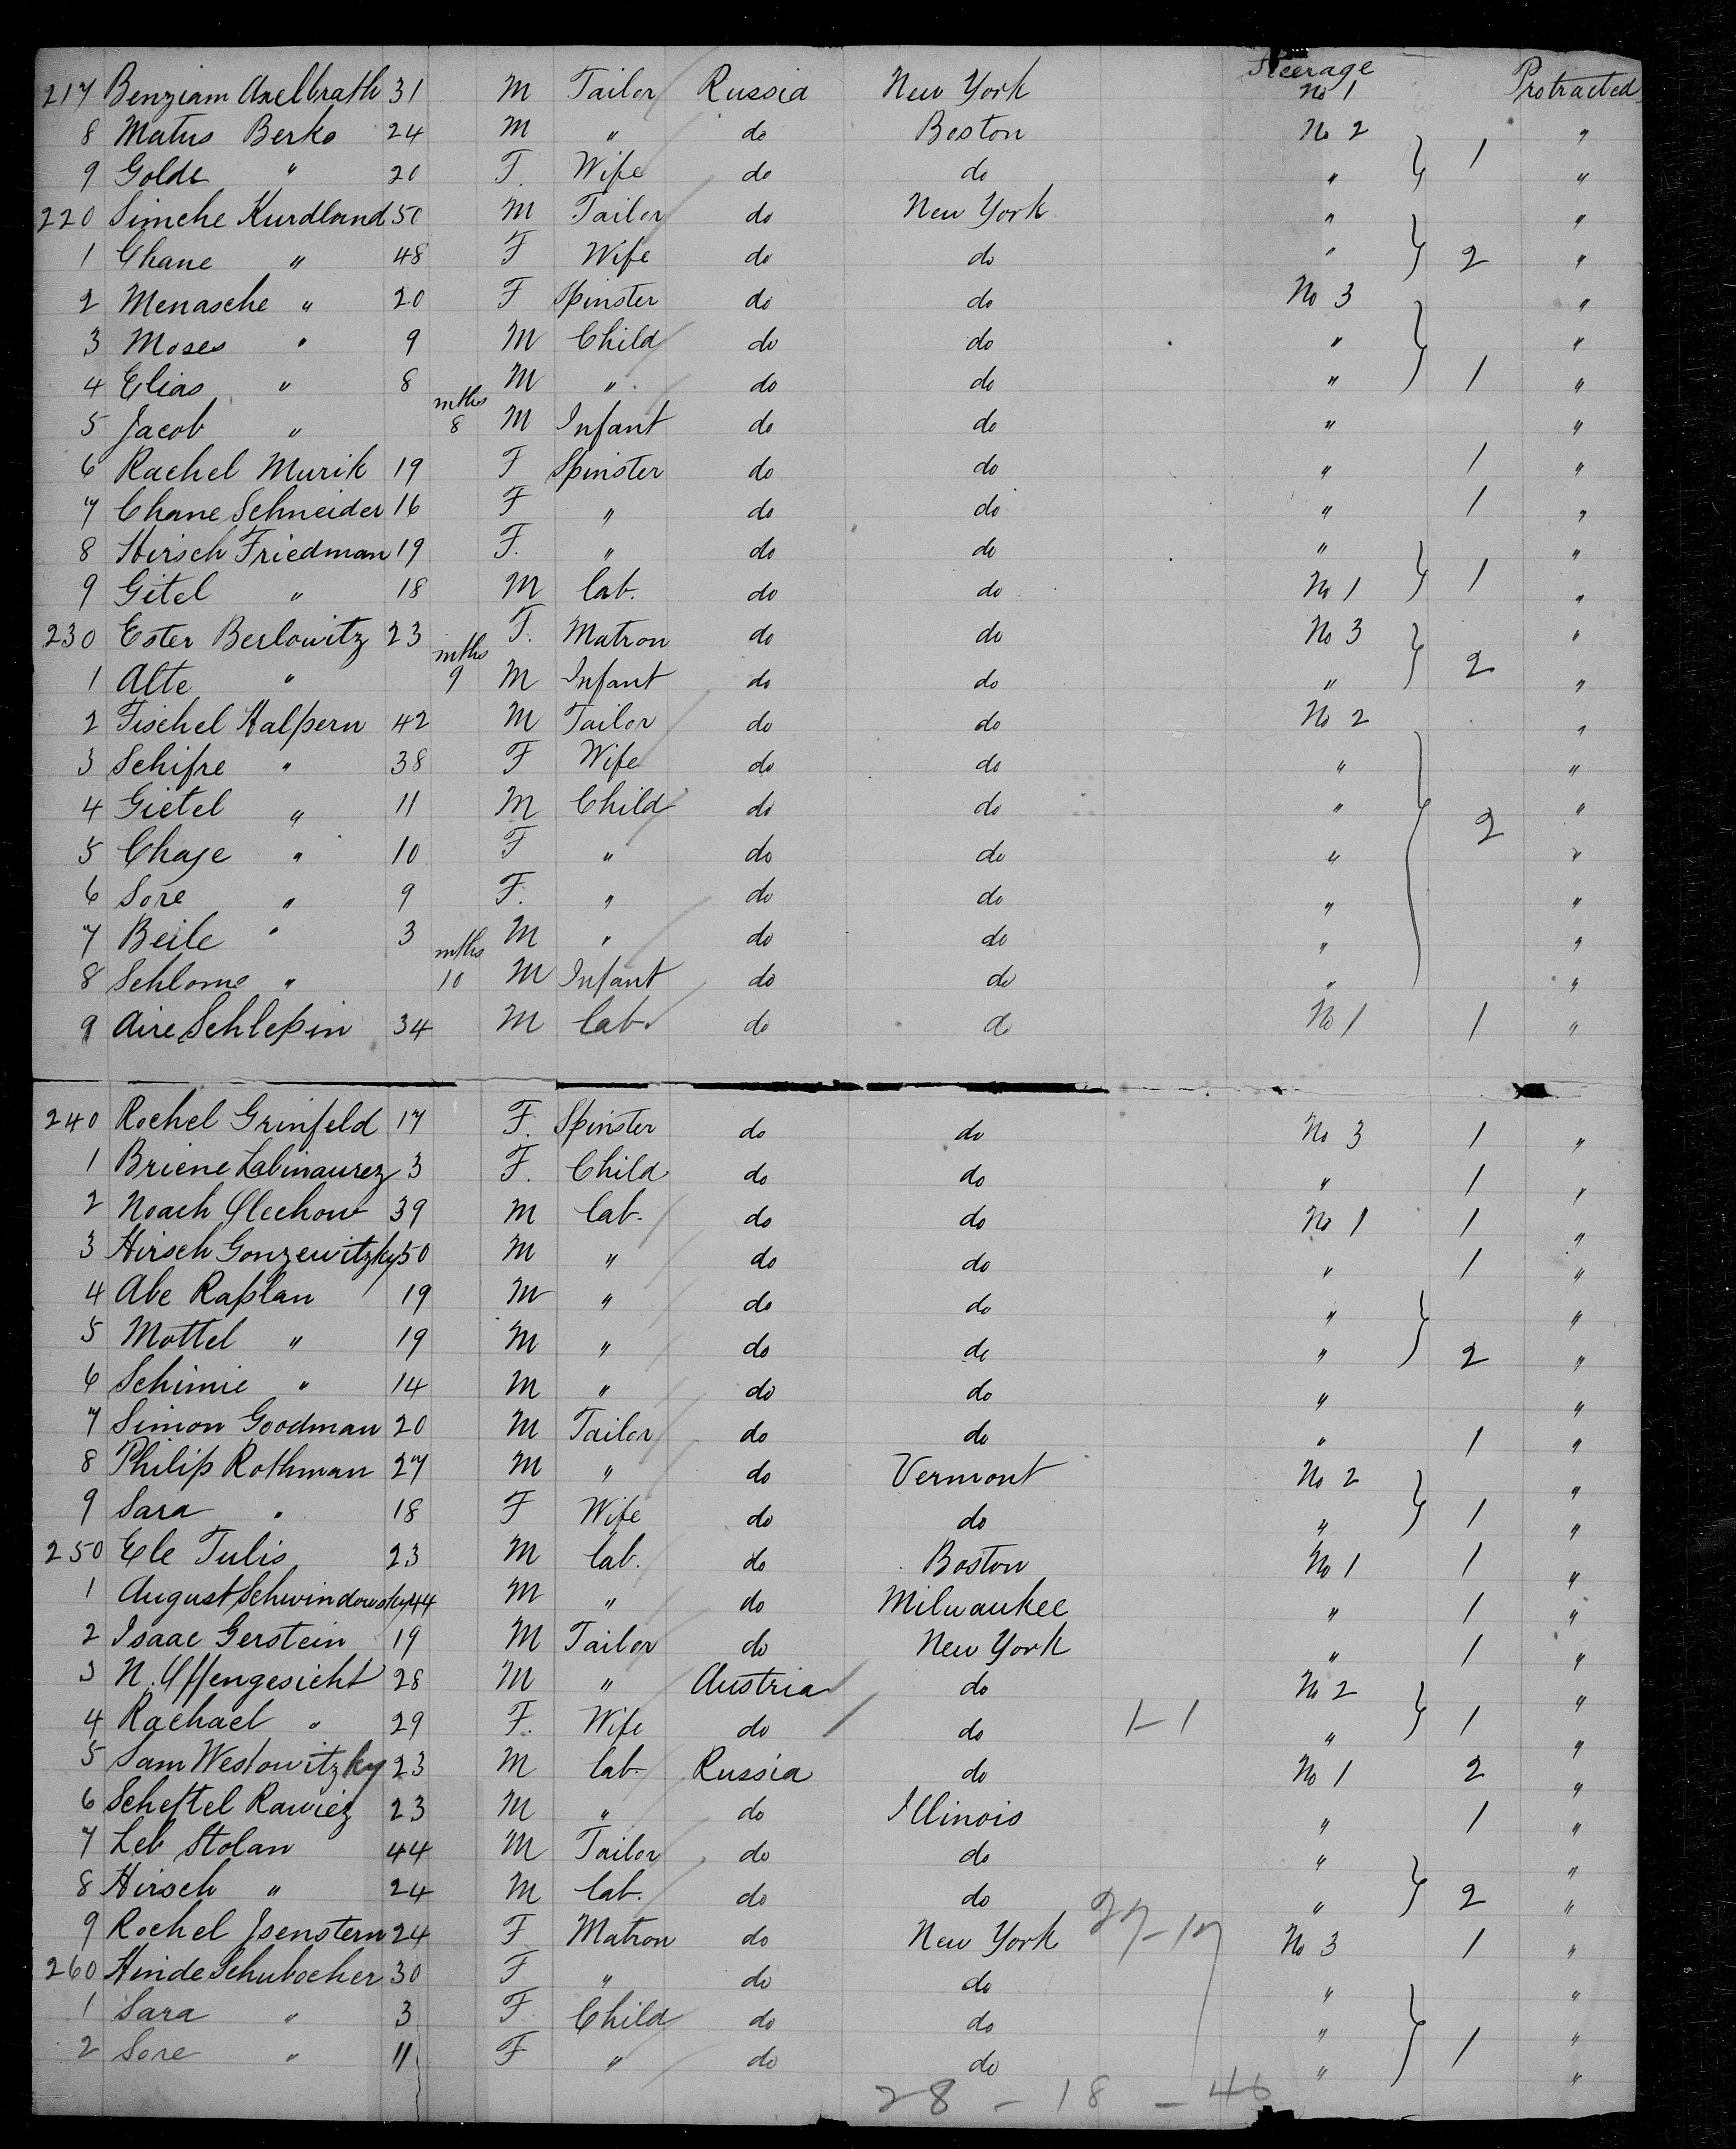 Steerage
217 Benziam Axelbrath 31 M Tailor Russia New York No 1 Protracted
8 Matus Berko 24 M " do Boston No 2 "
9 Golde " 20 F. Wife do do " 1 "
220 Simche Kurdland 50 M Tailor do New York " "
1 Chane " 48 F Wife do do " 2 "
2 Menasche " 20 F Spinster do do No 3 "
3 Moses " 9 M Child do do " "
4 Elias " 8 M " do do " 1 "
5 Jacob " mths 8 M Infant do do " "
6 Rachel Murik 19 F Spinster do do " 1 "
7 Chane Schneider 16 F " do do " 1 "
8 Hirsch Friedman 19 F. " do do " "
9 Gitel " 18 M lab. do do No 1 1 "
230 Ester Berlowitz 23 F. Matron do do No 3 "
1 Alte " mths 9 M Infant do do " 2 "
2 Fischel Halpern 42 M Tailor do do No 2 "
3 Schifre " 38 F Wife do do " "
4 Gietel " 11 M Child do do " 2 "
5 Chaje " 10 F " do do " "
6 Sore " 9 F. " do do " "
7 Beile " 3 M " do do " "
8 Schlome " mths 10 M Infant do do " "
9 Aire Schlepin 34 M lab. do do No 1 1 "
240 Rochel Grinfeld 17 F. Spinster do do No 3 1 "
1 Briene Labinaurez 3 F. Child do do " 1 "
2 Noach Olechow 39 M lab. do do No 1 1 "
3 Hirsch Gonzewitzky 50 M " do do " 1 "
4 Abe Kaplan 19 M " do do " "
5 Mottel " 19 M " do do " 2 "
6 Schimie " 14 M " do do " "
7 Simon Goodman 20 M Tailor do do " 1 "
8 Philip Rothman 27 M " do Vermont No 2 "
9 Sara " 18 F Wife do do " 1 "
250 Ele Tulis 23 M lab. do Boston No 1 1 "
1 August Schwindowsky 44 M " do Milwaukee " 1 "
2 Isaac Gerstein 19 M Tailor do New York " 1 "
3 N. Offengesicht 28 M " Austria do No 2 "
4 Rachael " 29 F. Wife do do 1-1 " 1 "
5 Sam Westowitzky 23 M lab. Russia do No 1 2 "
6 Scheftel Rawiez 23 M " do Illinois " 1 "
7 Leb Stolan 44 M Tailor do do " "
8 Hirsch " 24 M lab. do do " 2 "
9 Rochel Isenstern 24 F Matron do New York 27-17 No 3 1 "
260 Hinde Schubocher 30 F " do do " "
1 Sara " 3 F. Child do do " "
2 Sore " 11 F " do do " 1 "
28 - 18 - 46